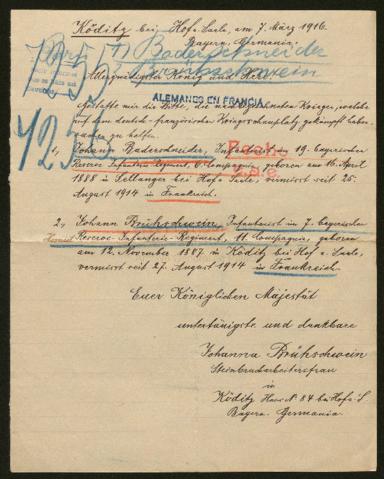 Köditz bei Hof a. Saale, am 7. März 1916.
Bayern, Germania.
1) Baderschneider
Brühschwein
Allergnädigster König und Herr!
ALEMANES EN FRANCIA
gestatte mir die Bitte, die nachstehenden Krieger, welche
auf dem deutsch-französischen Kriegsschauplatz gekämpft haben,
zu helfen.
1, Johann Baderschneider, 19. bayerischen
Reserve Infanterie Regiment, Compagnie, geboren am 16. April
1888 in bei Hof a. Saale, vermisst seit 25.
August 1914 in Frankreich.
2, Johann Brühschwein, Infanterist im 7. bayerischen
Reserve-Infanterie-Regiment, 11. Compagnie, geboren
am 12. November 1887 in Köditz bei Hof a. Saale,
vermisst seit 27. August 1914 in Frankreich.
Euer Königlichen Majestät
untertänigste und dankbare
Johanna Brühschwein
Steinbrucharbeitersfrau
in
Köditz Haus N. 84 bei Hof a. S.
Bayern. Germania.